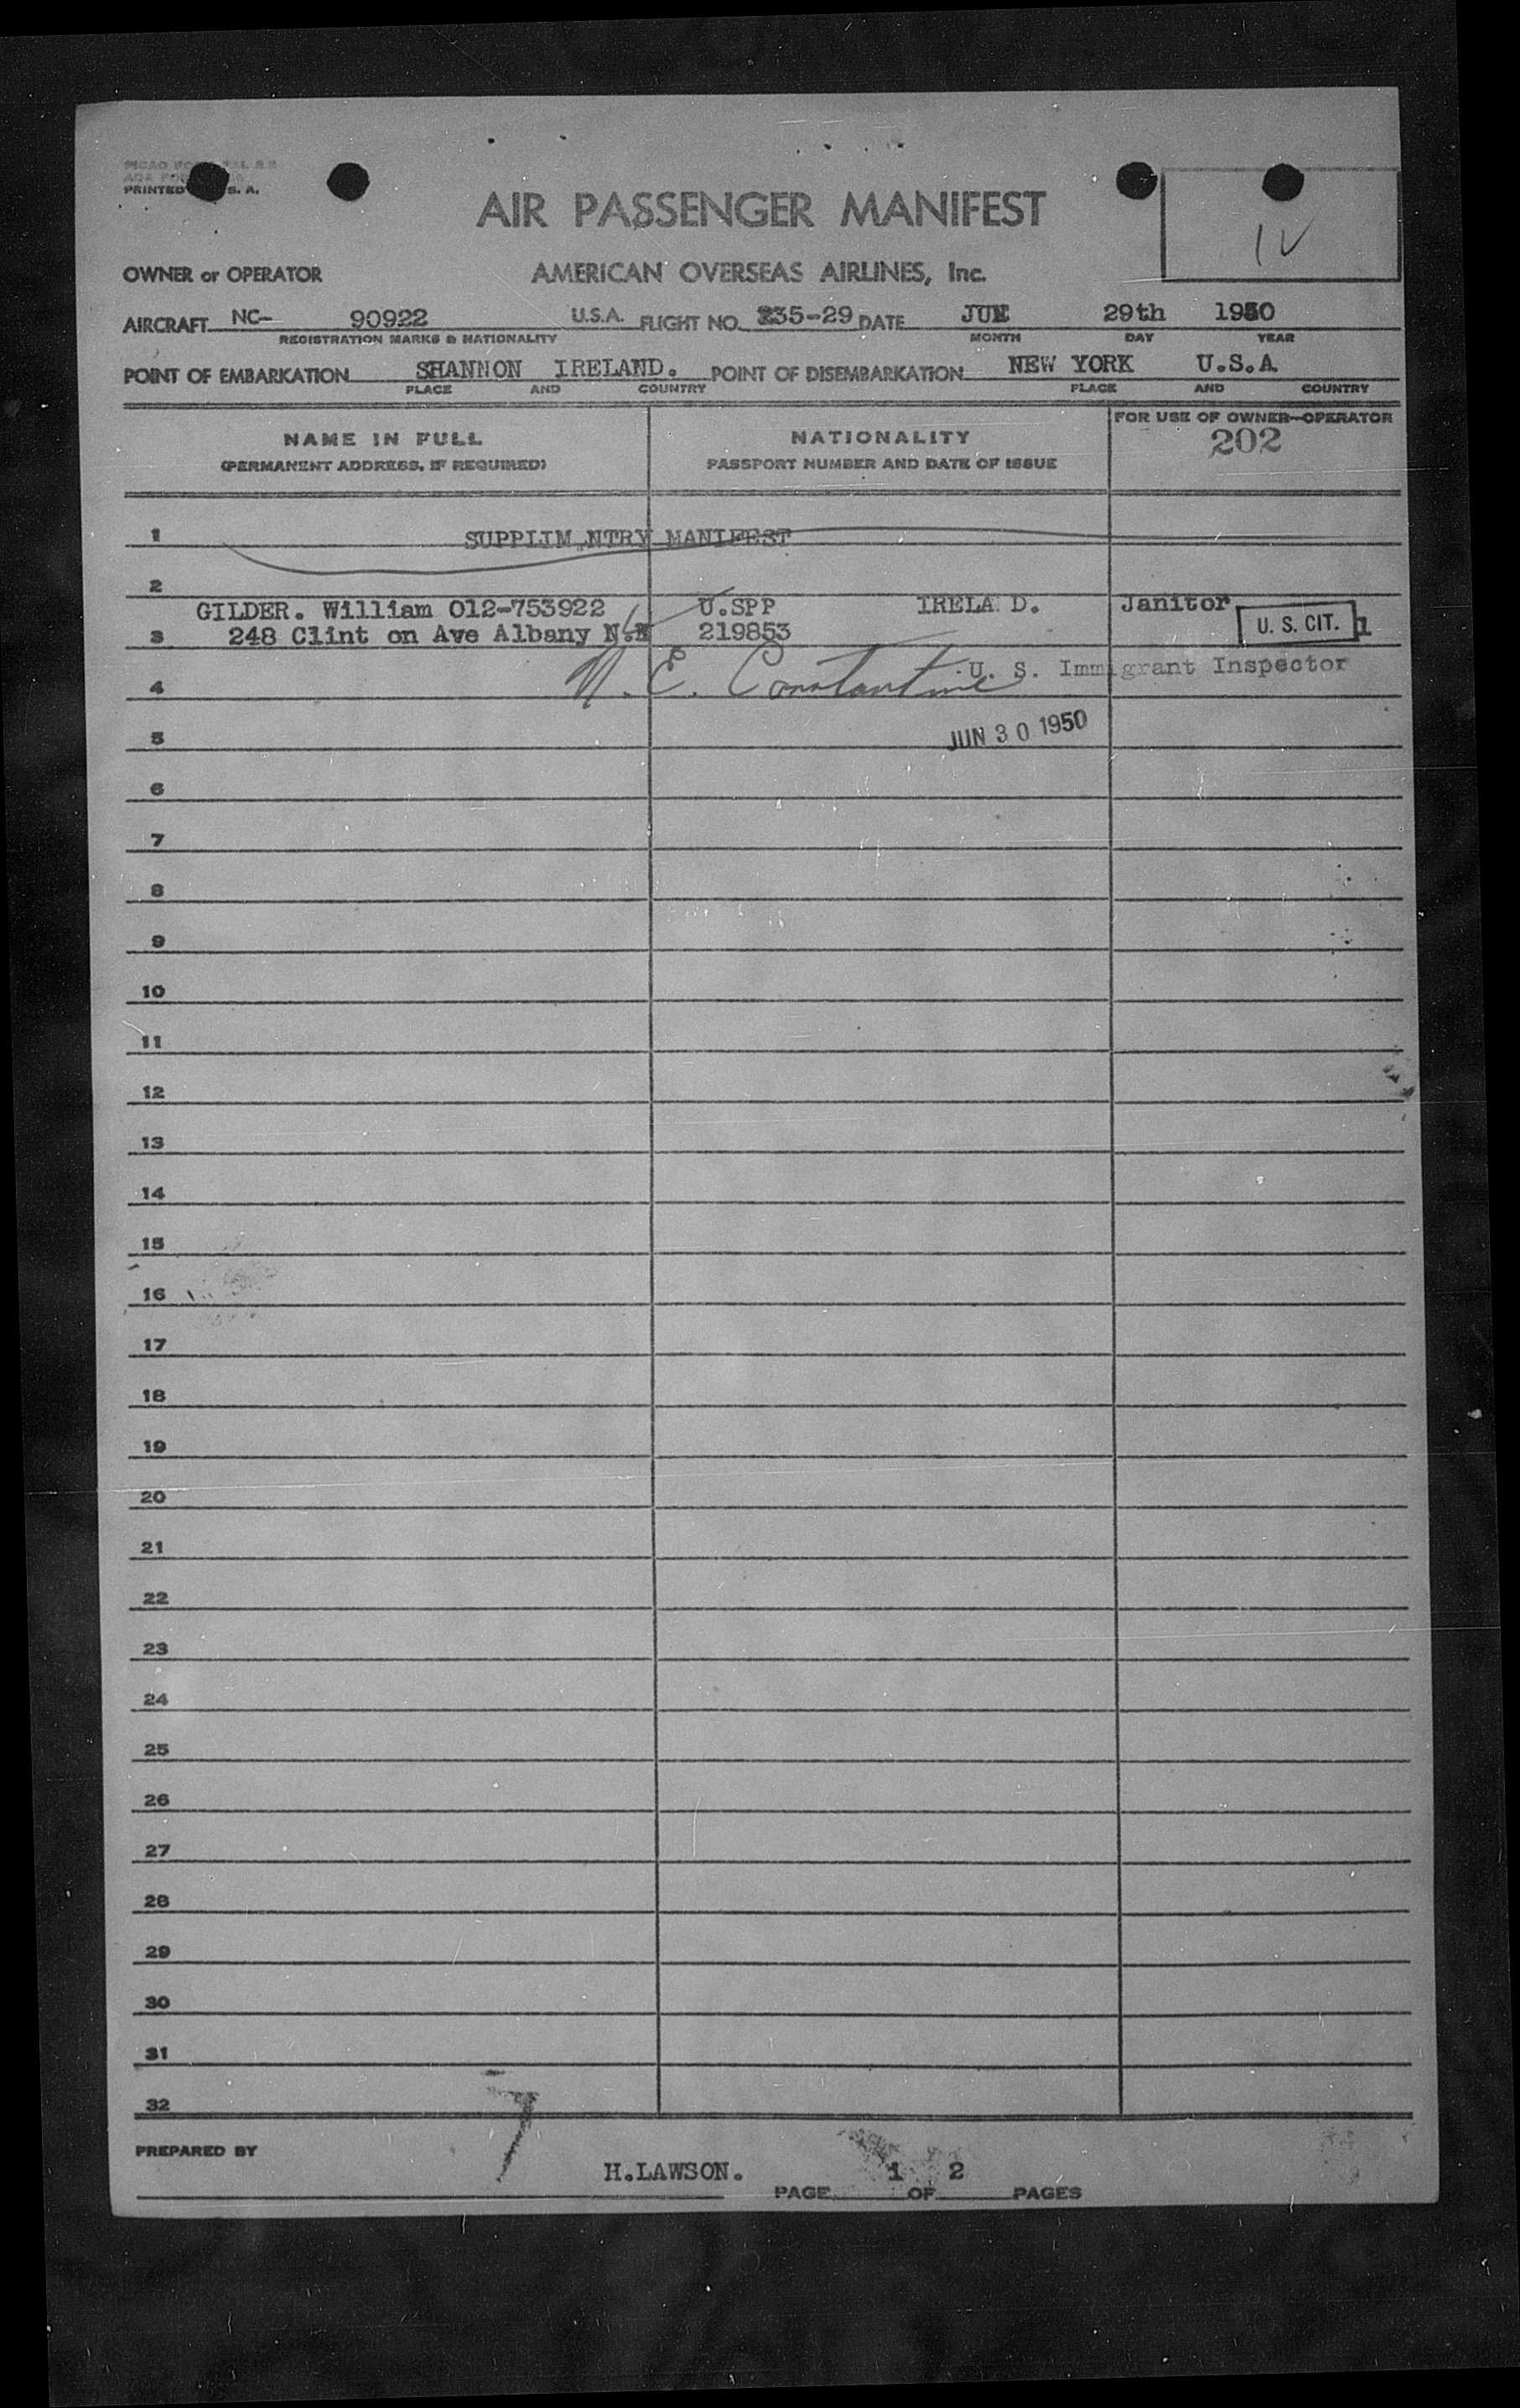 PRINTED S. A.
AIR PASSENGER MANIFEST
OWNER or OPERATOR AMERICAN OVERSEAS AIRLINES, Inc.
AIRCRAFT NC- 90922 U.S.A. FLIGHT NO. 235-29 DATE JUNE 29th 1950
REGISTRATION MARKS & NATIONALITY MONTH DAY YEAR
POINT OF EMBARKATION SHANNON IRELAND. POINT OF DISEMBARKATION NEW YORK U.S.A
PLACE AND COUNTRY PLACE AND COUNTRY
NAME IN FULL NATIONALITY FOR USE OF OWNER-OPERATOR
(PERMANENT ADDRESS, IF REQUIRED) PASSPORT NUMBER AND DATE OF ISSUE 202
1 SUPPLIM NTRY MANIFEST
2
GILDER. William 012-753922 U.SPP IRELA D. Janitor
3 248 Clint on Ave Albany N.Y 219853 U. S. CIT. 1
4 N. E. Constantine U. S. Immigrant Inspector
5 JUN 30 1950
6
7
8
9
10
11
12
13
14
15
16
17
18
19
20
21
22
23
24
25
26
27
28
29
30
31
32
PREPARED BY
H.LAWSON. PAGE 1 OF 2 PAGES